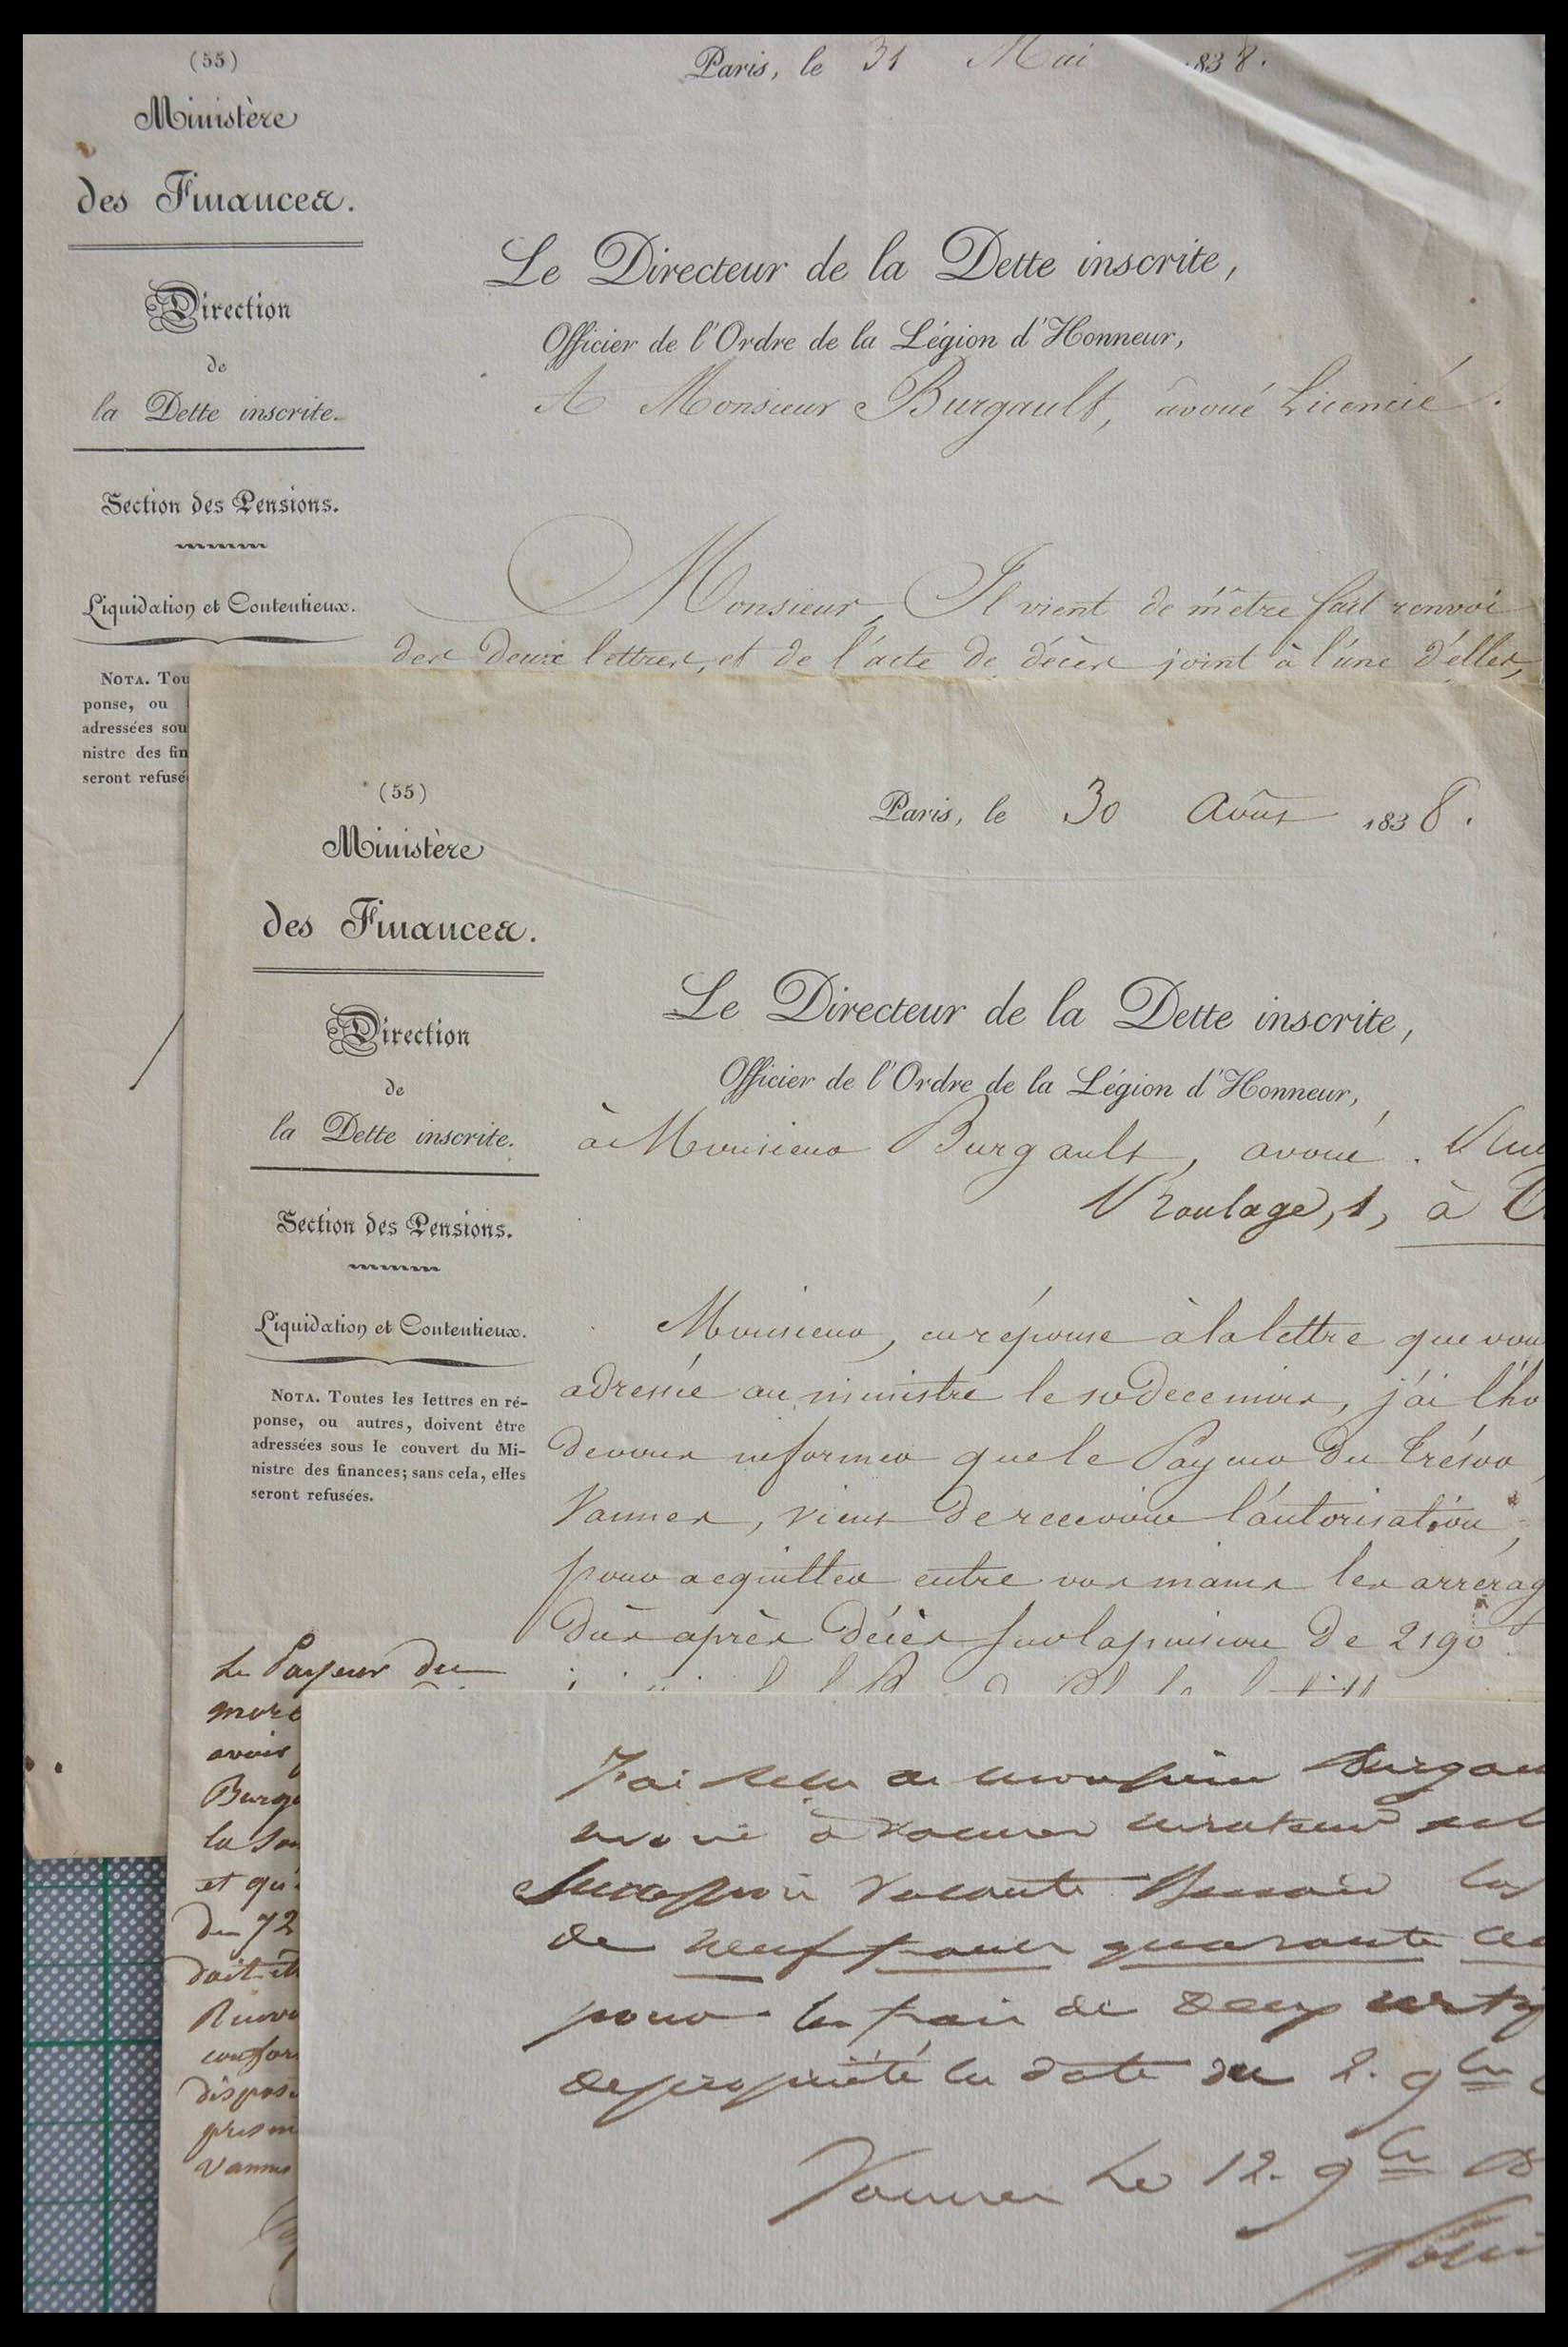 (55)
Paris, le 31 Mai 1838.
Ministère
des Finances.
Direction
de
la Dette inscrite.
Section des Pensions.
Liquidation et Contentieux.
NOTA. Tou
ponse, ou
adressées sou
nistre des fin
seront refusé
Le Directeur de la Dette inscrite,
Officier de l'Ordre de la Légion d'Honneur,
A Monsieur Burgault, avoué Licencié.
Monsieur, Il vient de m'être fait renvoi
des deux lettres, et de l'acte de décès joint à l'une d'elles,
(55)
Paris, le 30 Août 1838.
Ministère
des Finances.
Direction
de
la Dette inscrite.
Section des Pensions.
Liquidation et Contentieux.
NOTA. Toutes les lettres en ré-
ponse, ou autres, doivent être
adressées sous le couvert du Mi-
nistre des finances; sans cela, elles
seront refusées.
Le Directeur de la Dette inscrite,
Officier de l'Ordre de la Légion d'Honneur,
à Monsieur Burgault, avoué. Rue
Roulage, 1, à
Monsieur, en réponse à la lettre que vou
adressée au ministre le 10 de ce mois, j'ai l'ho
de vous informer que le Payeur du trésor,
Vannes, vient de recevoir l'autorisation,
pour acquitter entre vos mains les arrérag
dûs après décès sur la pension de 2190
Le Payeur du
morb
avoir
Burga
la So
et qu'
de 72
doit êt
Renvo
confor
dispos
pris
Vannes
J'ai reçu de monsieur Burgau
avoué à Vannes curateur
Succession Vacante
de neuf francs quarante ce
pour les frais de deux certif
de propriété en date du 2. 9bre
Vannes Le 12. 9bre